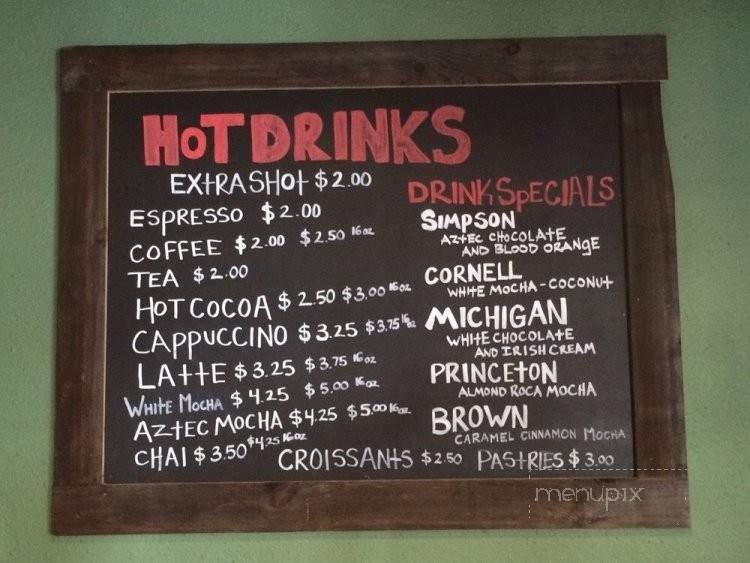 HOT DRINKS
EXTRA SHOT $2.00
ESPRESSO $2.00
COFFEE $2.00 $2.50 16oz
TEA $2.00
HOT COCOA $2.50 $3.00 16oz
CAPPUCCINO $3.25 $3.75 16oz
LATTE $3.25 $3.75 16oz
WHITE MOCHA $4.25 $5.00 16oz
AZTEC MOCHA $4.25 $5.00 16oz
CHAI $3.50 $4.25 16oz
DRINK SPECIALS
SIMPSON
AZTEC CHOCOLATE
AND BLOOD ORANGE
CORNELL
WHITE MOCHA-COCONUT
MICHIGAN
WHITE CHOCOLATE
AND IRISH CREAM
PRINCETON
ALMOND ROCA MOCHA
BROWN
CARAMEL CINNAMON MOCHA
CROISSANTS $2.50 PASTRIES $3.00
menupix